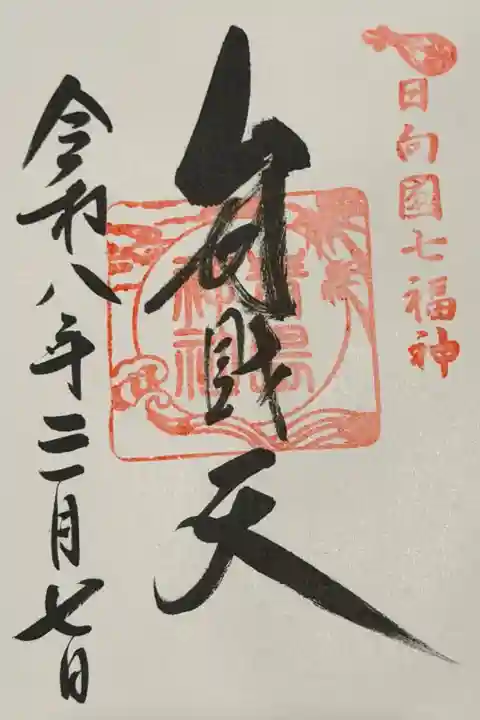 日向國七福神
弁財天
青島神社
令和八年二月七日